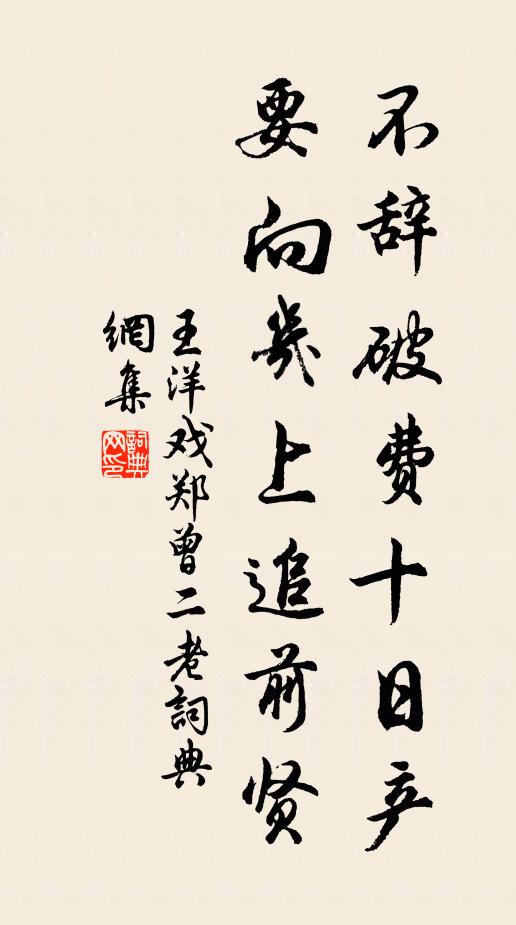 不辞破费十日产
要向幾上追前贤
王洋戏郑曾二老詞典
網集
詞典
网印